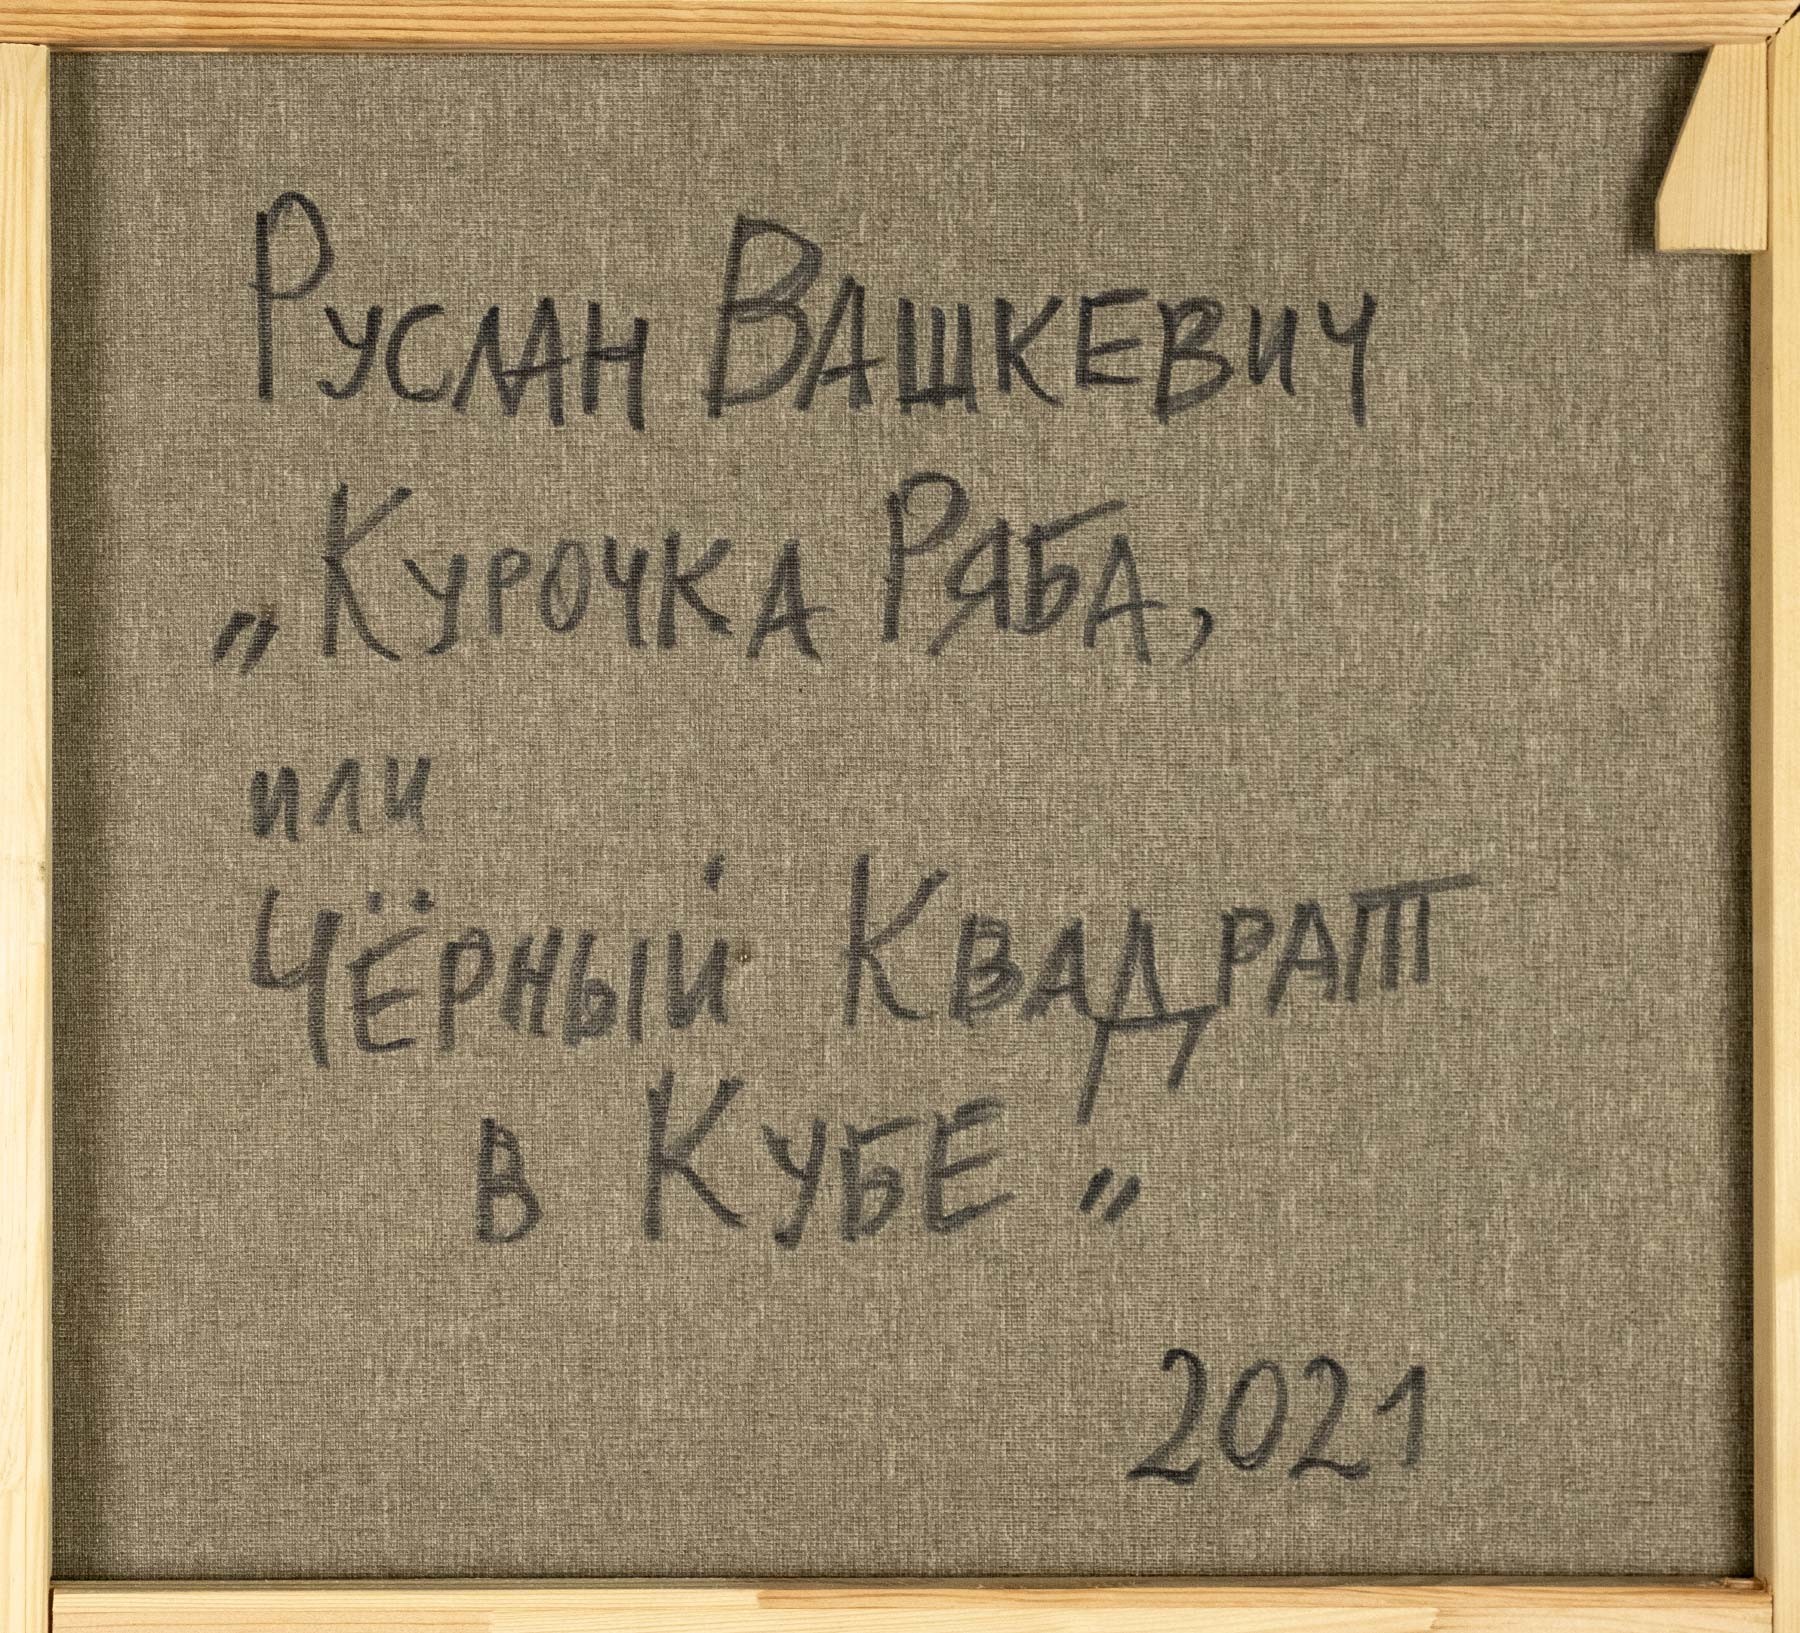 Руслан Вашкевич
„Курочка Ряба,
или
Чёрный Квадрат
в Кубе"
2021